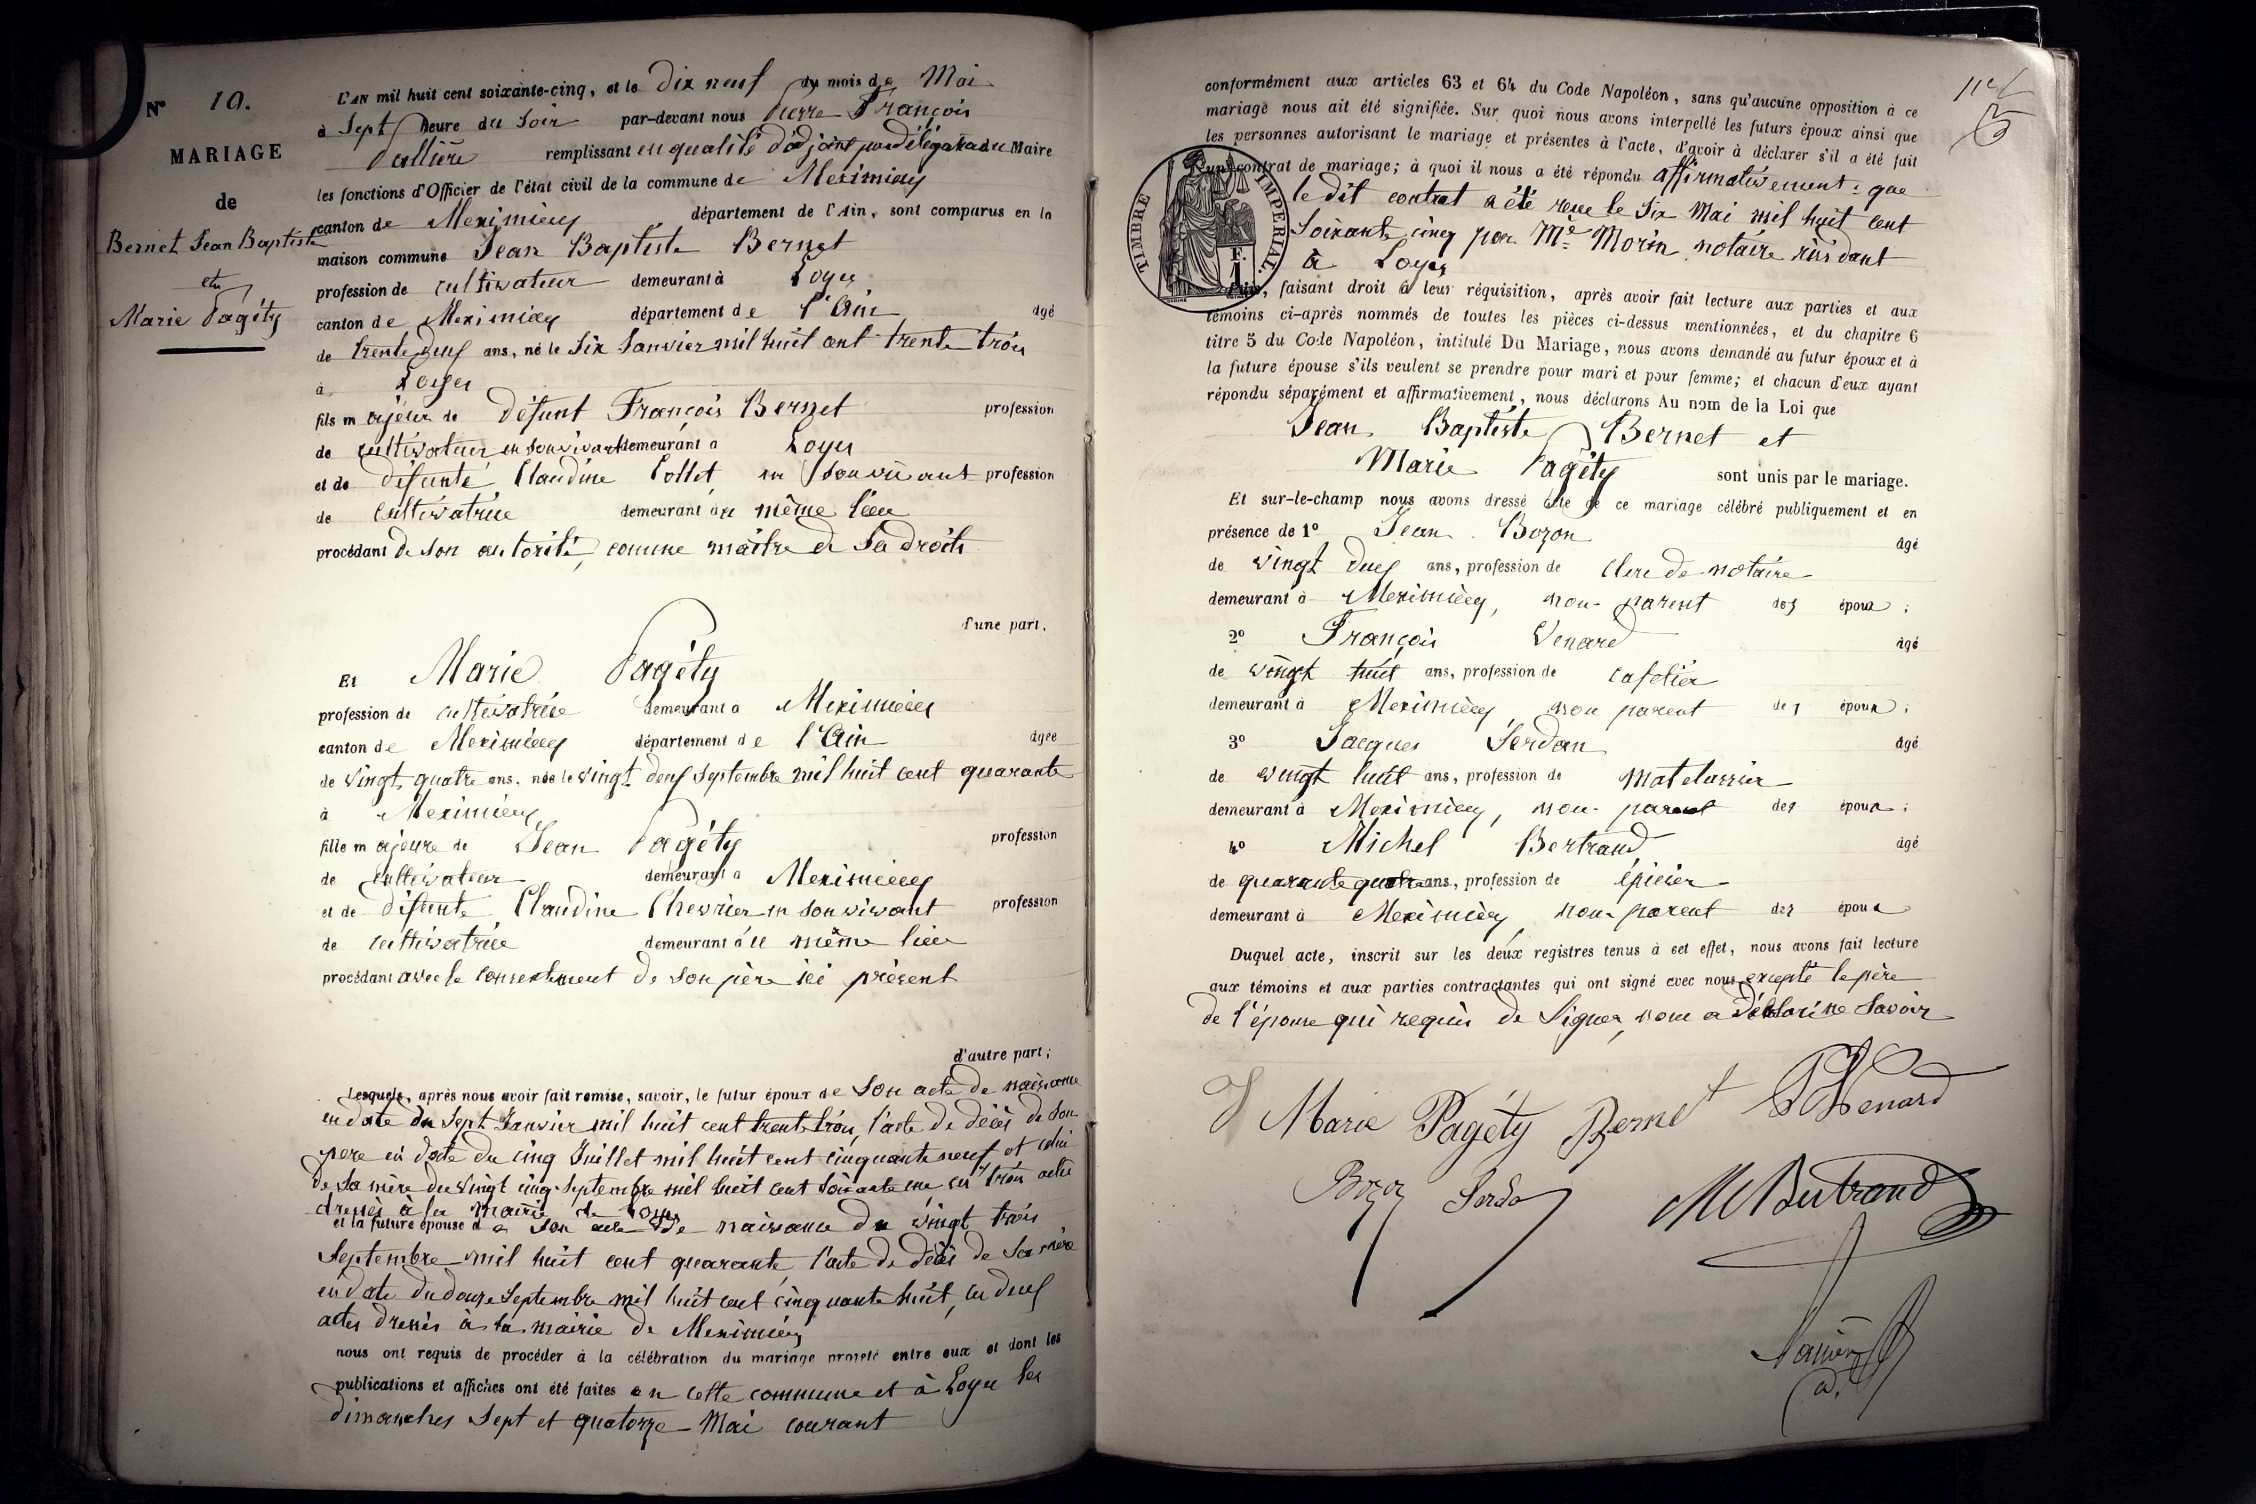 N° 10.
MARIAGE
de
Bernet Jean Baptiste
et
Marie Pagéty
L'AN mil huit cent soixante-cinq, et le dix neuf du mois de Mai
à Sept heure du Soir par-devant nous Pierre François
remplissant en qualité d'adjoint par délégation du Maire
les fonctions d'Officier de l'état civil de la commune de Meximieux
canton de Meximieux département de l'Ain, sont comparus en la
maison commune Jean Baptiste Bernet
profession de cultivateur demeurant à Loyes
canton de Meximieux département de l'Ain âgé
de trente deux ans, né le Six Janvier mil huit cent trente trois
à Loyes
fils majeur de défunt François Bernet profession
de cultivateur en son vivant demeurant à Loyes
et de défunte Claudine Pollet en son vivant profession
de cultivatrice demeurant au même lieu
procédant de son autorité, comme maître de Sa droits
d'une part.
Et Marie Pagéty
profession de cultivatrice demeurant à Meximieux
canton de Meximieux département de l'Ain âgée
de vingt quatre ans, née le vingt deux Septembre mil huit cent quarante
à Meximieux
fille majeure de Jean Pagéty profession
de cultivateur demeurant à Meximieux
et de défunte Claudine Chevrier en son vivant profession
de cultivatrice demeurant au même lieu
procédant avec le consentement de son père ici présent
d'autre part;
Lesquels, après nous avoir fait remise, savoir, le futur époux de Son acte de naissance
en date du Sept Janvier mil huit cent trente trois, l'acte de décès de Son
père en date du cinq Juillet mil huit cent cinquante neuf et celui
de Sa mère du vingt cinq Septembre mil huit cent soixante un ces trois actes
dressés à la mairie de Loyes
et la future épouse de Son acte de naissance du vingt trois
Septembre mil huit cent quarante, l'acte de décès de Sa mère
en date du douze Septembre mil huit cent cinquante huit, ces deux
actes dressés à la mairie de Meximieux
nous ont requis de procéder à la célébration du mariage projeté entre eux et dont les
publications et affiches ont été faites en cette commune et à Loyes les
dimanches Sept et quatorze Mai courant
conformément aux articles 63 et 64 du Code Napoléon, sans qu'aucune opposition à ce
mariage nous ait été signifiée. Sur quoi nous avons interpellé les futurs époux ainsi que
les personnes autorisant le mariage et présentes à l'acte, d'avoir à déclarer s'il a été fait
un contrat de mariage; à quoi il nous a été répondu affirmativement: que
le dit contrat a été reçu le Six Mai mil huit cent
Soixante cinq par Me Morin notaire résidant
à Loyes
TIMBRE IMPÉRIAL.
F. 1
faisant droit à leur réquisition, après avoir fait lecture aux parties et aux
témoins ci-après nommés de toutes les pièces ci-dessus mentionnées, et du chapitre 6
titre 5 du Code Napoléon, intitulé Du Mariage, nous avons demandé au futur époux et à
la future épouse s'ils veulent se prendre pour mari et pour femme; et chacun d'eux ayant
répondu séparément et affirmativement, nous déclarons Au nom de la Loi que
Jean Baptiste Bernet et
Marie Pagéty sont unis par le mariage.
Et sur-le-champ nous avons dressé acte de ce mariage célébré publiquement et en
présence de 1° Jean Bozon âgé
de vingt deux ans, profession de Clerc de notaire
demeurant à Meximieux, non parent des époux;
2° François Venard âgé
de vingt huit ans, profession de cafetier
demeurant à Meximieux non parent des époux;
3° Jacques Serdan âgé
de vingt huit ans, profession de matelassier
demeurant à Meximieux, non parent des époux;
4° Michel Bertrand âgé
de quarante quatre ans, profession de épicier
demeurant à Meximieux, non parent des époux
Duquel acte, inscrit sur les deux registres tenus à cet effet, nous avons fait lecture
aux témoins et aux parties contractantes qui ont signé avec nous excepté le père
de l'épouse qui requis de Signer, nous a déclaré ne Savoir
Marie Pagéty Bernet Venard
Bozon M Bertrand